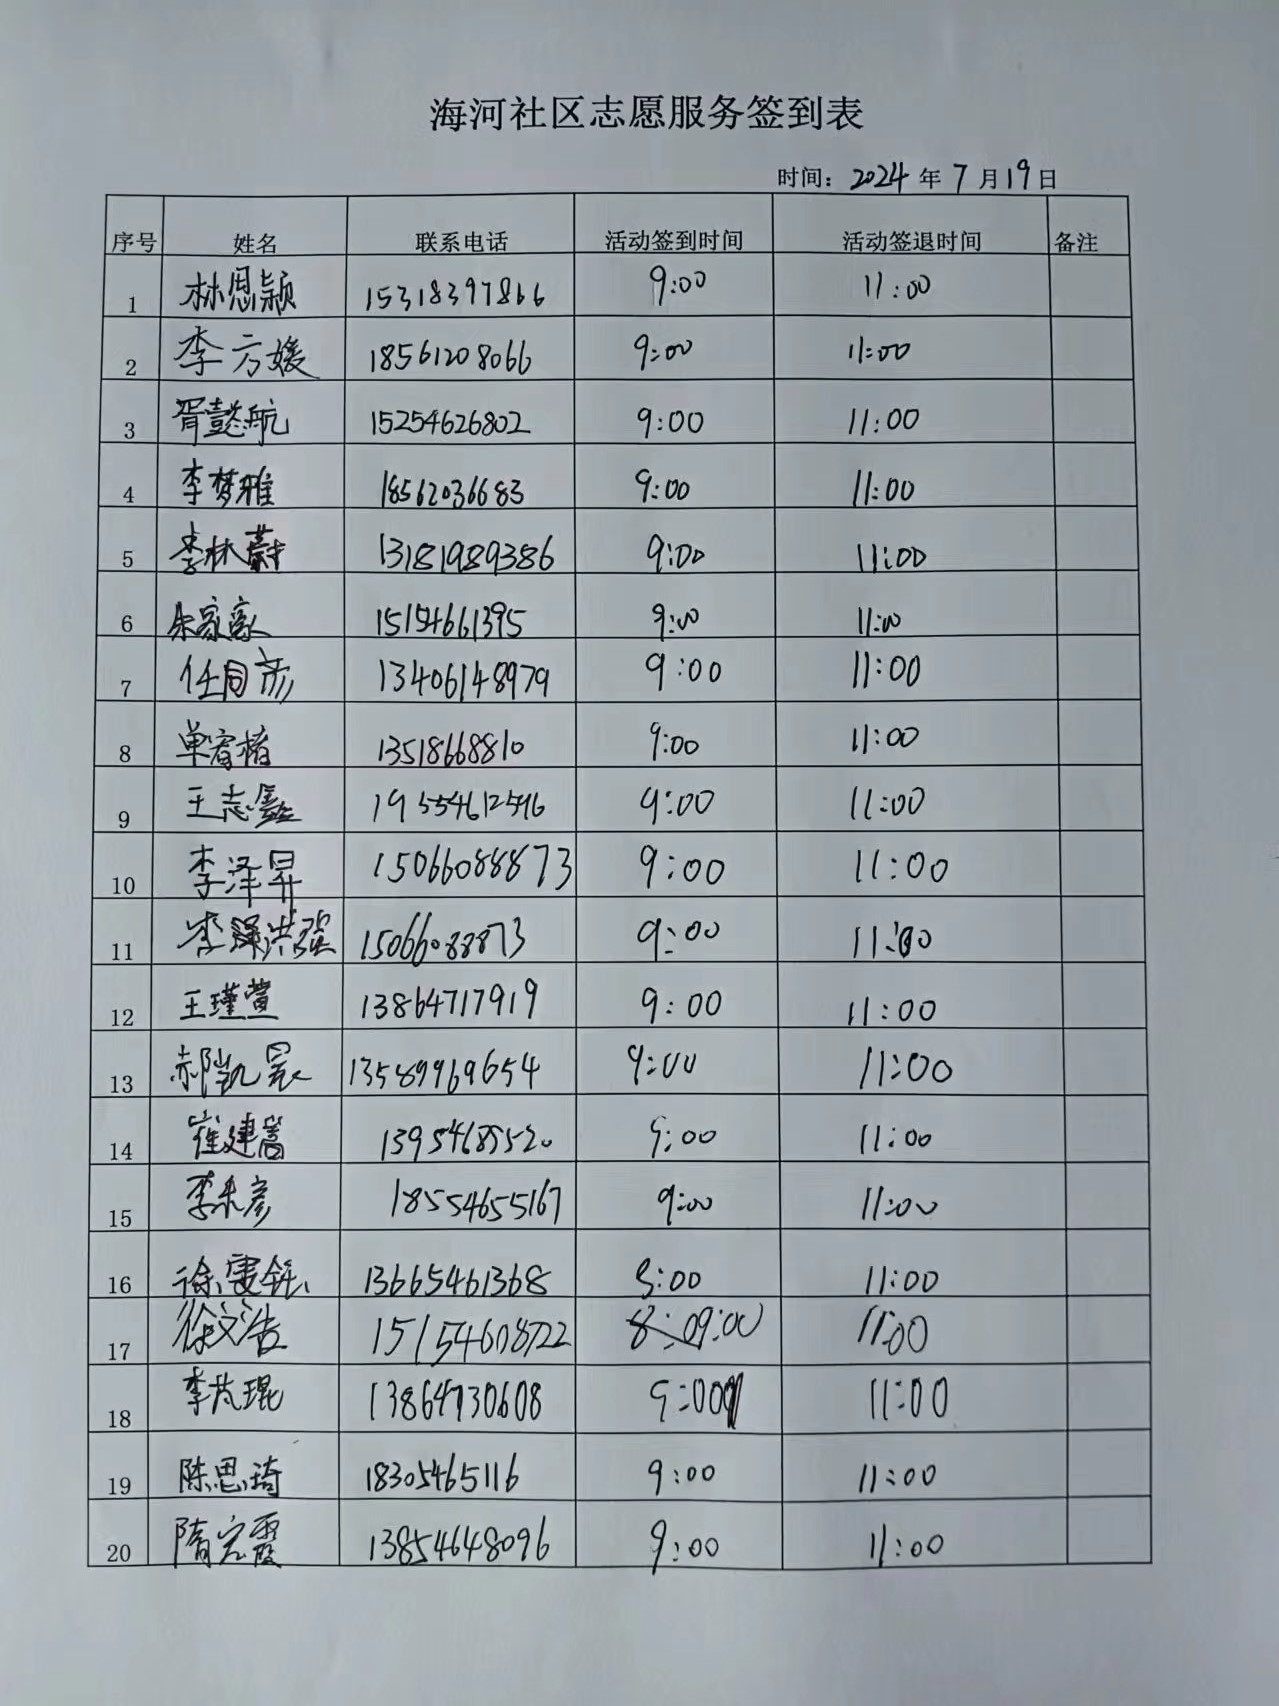 海河社区志愿服务签到表
时间：2024年7月19日
序号 姓名 联系电话 活动签到时间 活动签退时间 备注
1 林恩颖 15318397866 9:00 11:00
2 李方媛 18561208066 9:00 11:00
3 胥懿航 15254626802 9:00 11:00
4 李梦雅 18562036683 9:00 11:00
5 李林蔚 13181989386 9:00 11:00
6 朱家豪 15154661395 9:00 11:00
7 任同彦 13406148979 9:00 11:00
8 单宥楮 13518668810 9:00 11:00
9 王志鑫 19554612546 9:00 11:00
10 李泽昇 15066088873 9:00 11:00
11 李洪强 15066088873 9:00 11:00
12 王瑾萱 13864717919 9:00 11:00
13 郝凯 13589969654 9:00 11:00
14 崔建嵩 13954685520 9:00 11:00
15 李未彦 18554655167 9:00 11:00
16 徐雯钰 13665461368 9:00 11:00
17 徐文浩 15154608722 9:00 11:00
18 李芃琨 13864730608 9:00 11:00
19 陈思琦 18305465116 9:00 11:00
20 隋完霞 13854648096 9:00 11:00